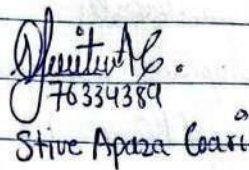 76334384
Stive Apaza Coari